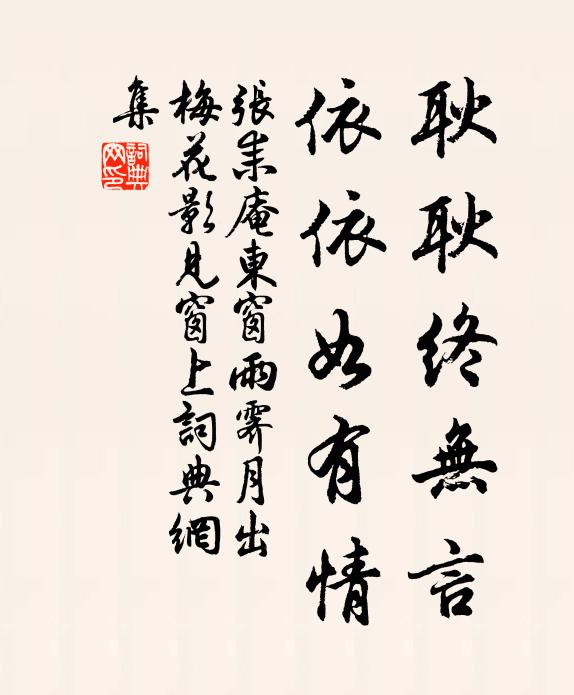 耿耿終無言
依依如有情
張耒庵東窗雨霽月出
梅花影見窗上詞典網
集
詞典
网印